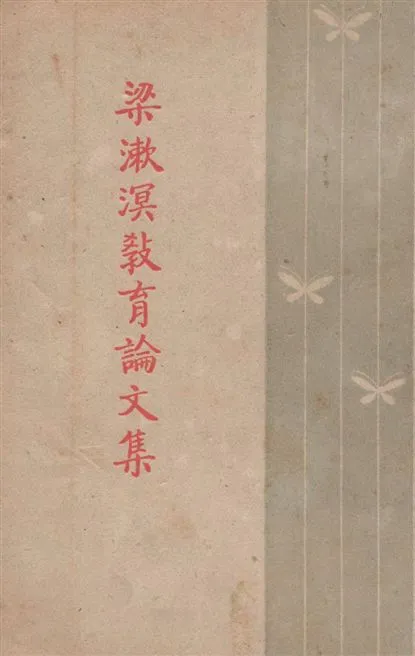 梁漱溟教育論文集